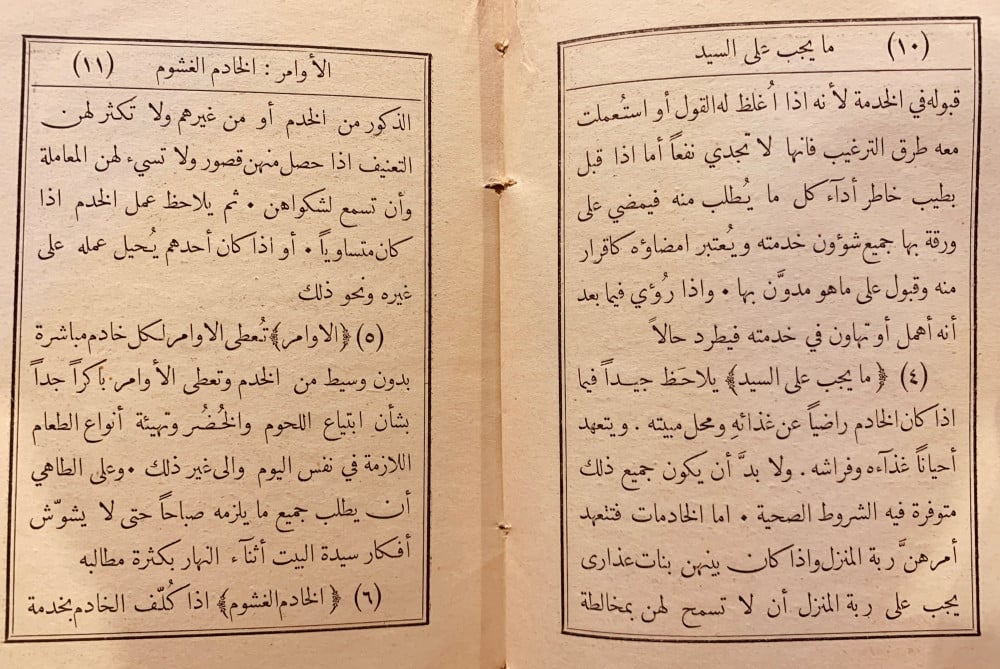 (١٠) ما يجب على السيد
قبوله في الخدمة لأنه اذا أُغلظ له القول أو استُعملت
معه طرق الترغيب فانها لا تجدي نفعاً أما اذا قبل
بطيب خاطر أدآء كل ما يُطلب منه فيمضي على
ورقة بها جميع شؤون خدمته ويُعتبر امضاؤه كاقرار
منه وقبول على ماهو مدوَّن بها • واذا رُؤي فيما بعد
أنه أهمل أو تهاون في خدمته فيطرد حالاً
(٤) ﴿ ما يجب على السيد ﴾ يلاحَظ جيـداً فيما
اذا كان الخادم راضياً عن غذائهِ ومحل مبيته . ويتعهد
أحياناً غذآءه وفراشه . ولا بدَّ أن يكون جميع ذلك
متوفرة فيه الشروط الصحية • اما الخادمات فتتعهد
أمرهنَّ ربة المنزل واذا كان بينهن بنات عذارى
يجب على ربة المنزل أن لا تسمح لهن بمخالطة
الأوامر : الخادم الغشوم (١١)
الذكور من الخدم أو من غيرهم ولا تكثر لهن
التعنيف اذا حصل منهن قصور ولا تسيء لهن المعاملة
وأن تسمع لشكواهن • ثم يلاحظ عمل الخدم اذا
كان متساوياً • أو اذا كان أحدهم يُحيل عمله على
غيره ونحو ذلك
(٥) ﴿ الاوامر ﴾ تُعطى الاوامر لكل خادم مباشرة
بدون وسيط من الخدم وتعطى الأوامر باكراً جداً
بشأن ابتياع اللحوم والخُضُر وتهيئة أنواع الطعام
اللازمة في نفس اليوم والى غير ذلك • وعلى الطاهي
أن يطلب جميع ما يلزمه صباحاً حتى لا يشوّش
أفكار سيدة البيت أثنآء النهار بكثرة مطالبه
(٦) ﴿ الخادم الغشوم ﴾ اذا كُلّف الخادم بخدمة